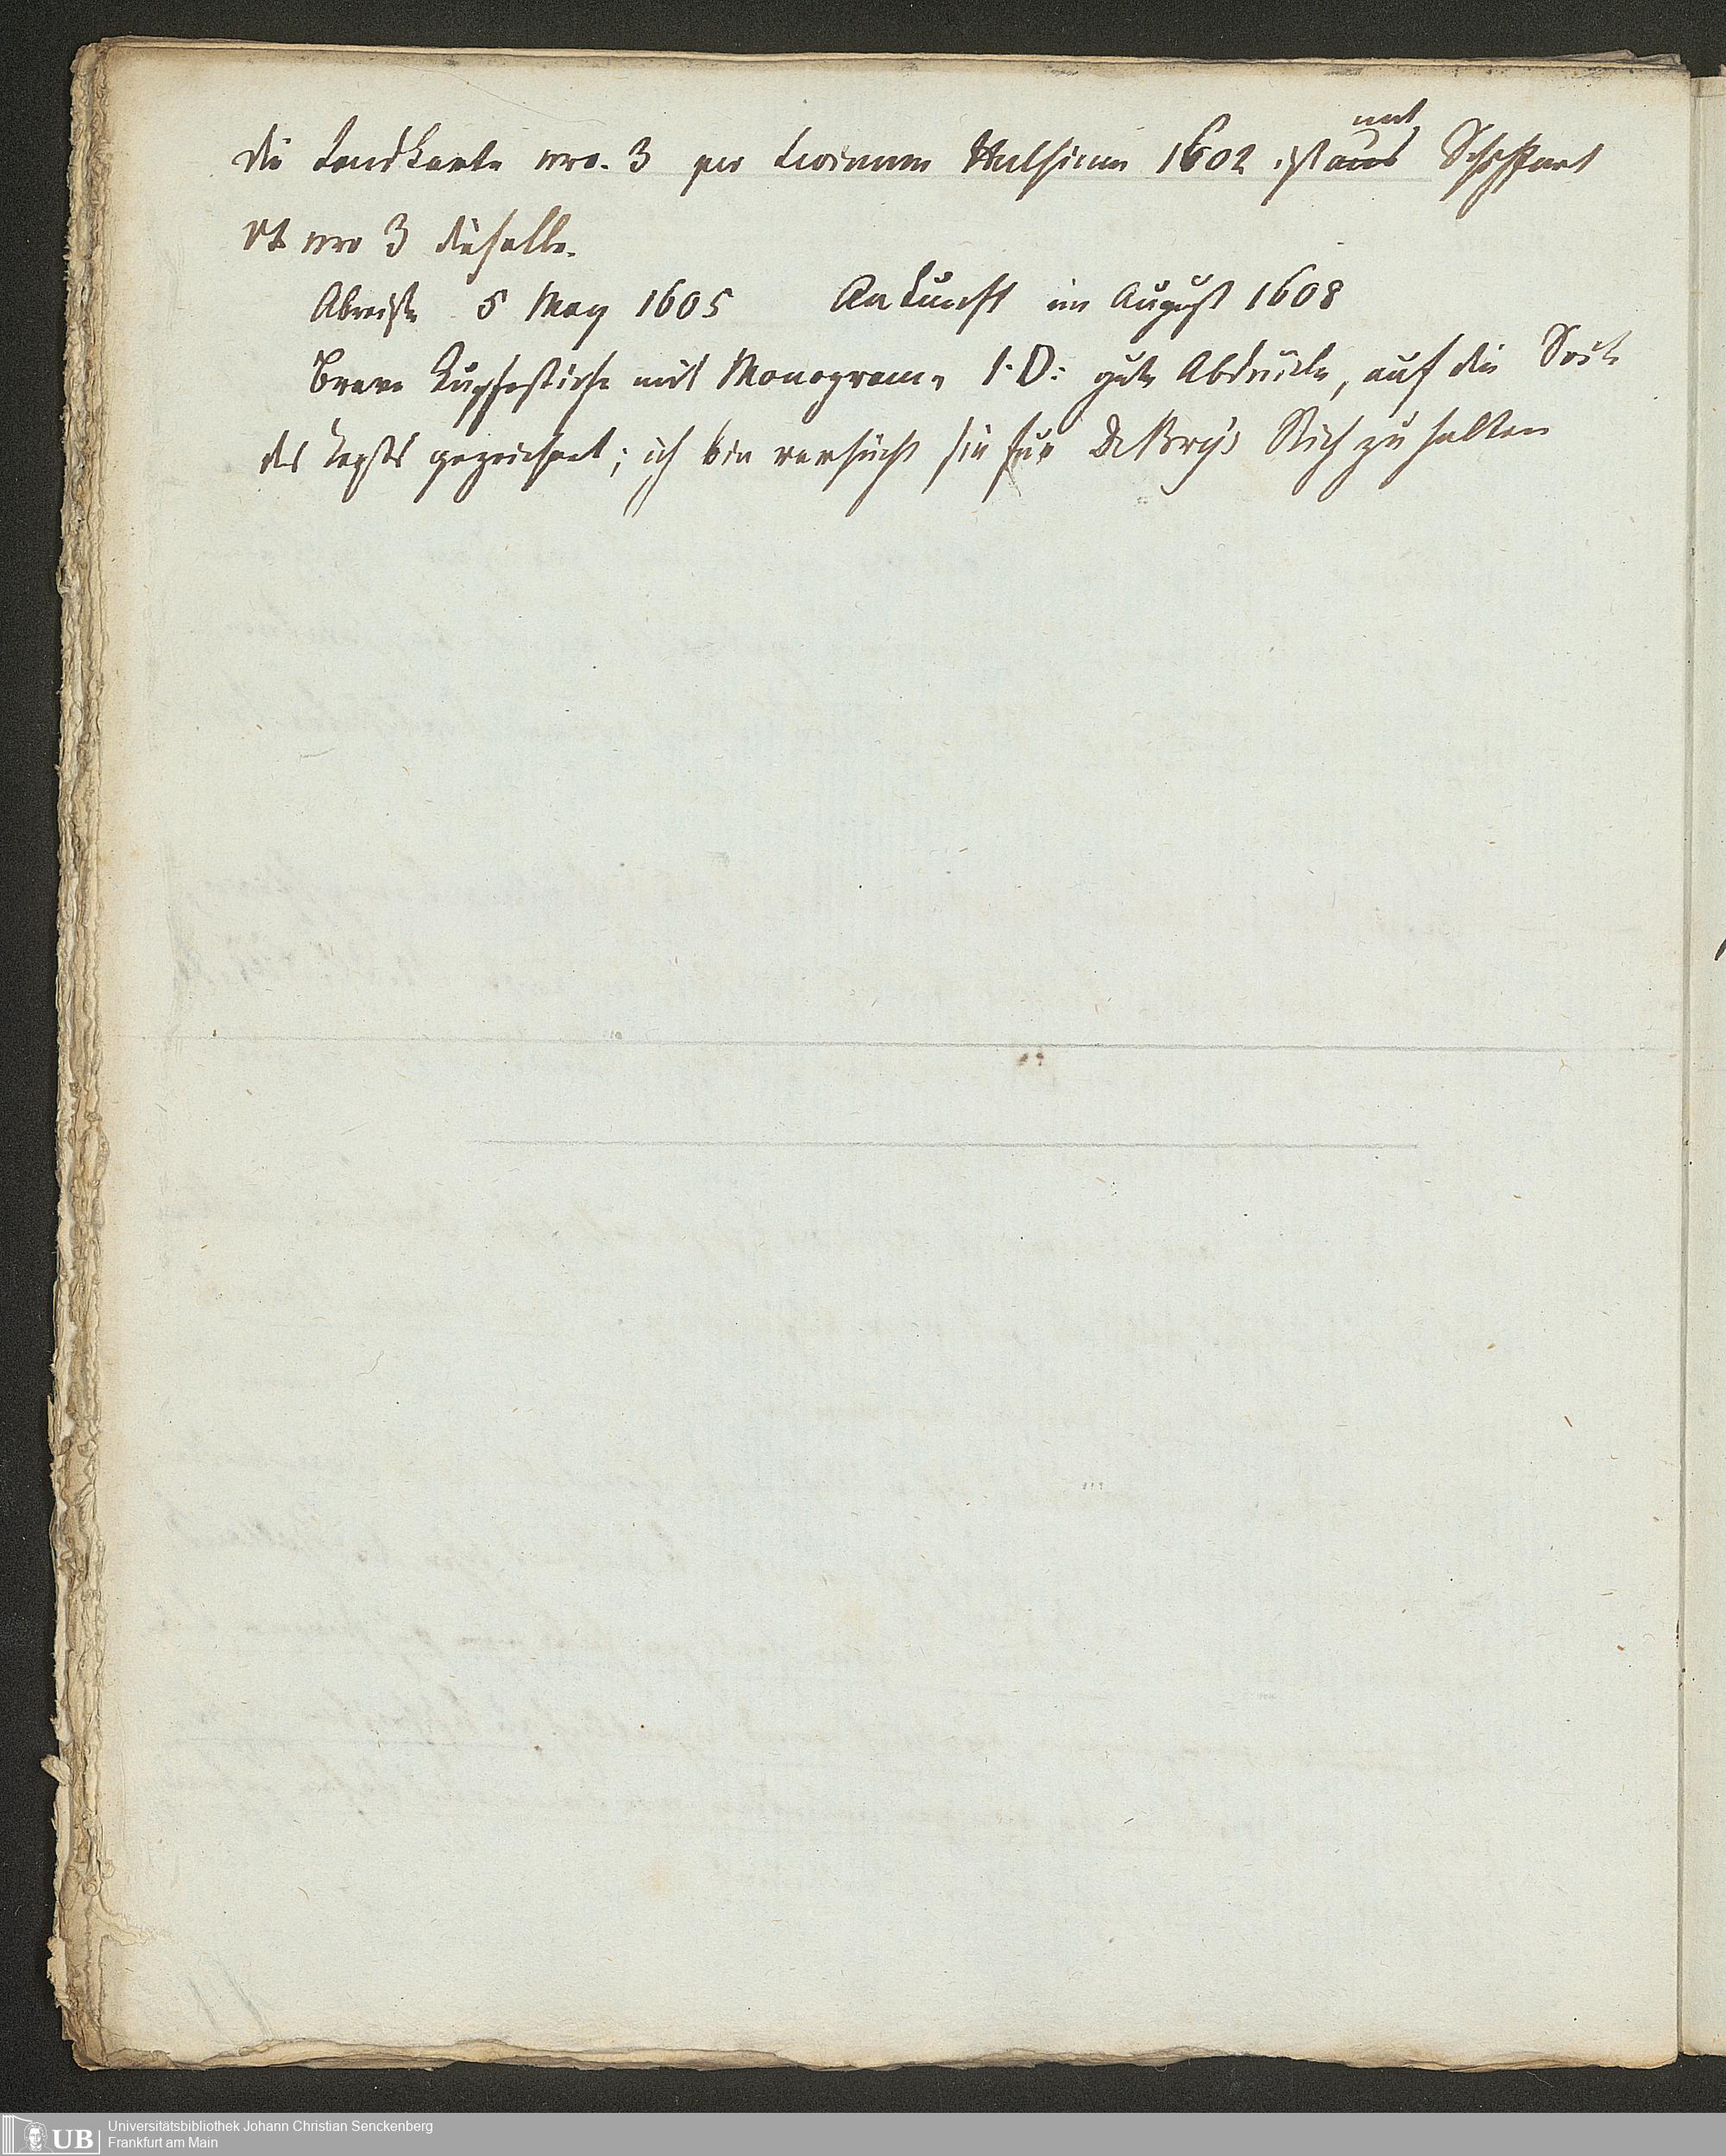 mit
die Landkarte nro. 3 per Levinum Hulsium 1602 ist aus Schiffart
nro 3 dieselbe.
Abreise 5 May 1605 Ankunft im August 1608
Brave Kupferstiche mit Monogram, I. D: gute Abdrücke, auf die Seite
des Textes gezeichnet; ich bin versucht sie für De Bry's Stich zu halten
UB
Universitätsbibliothek Johann Christian Senckenberg
Frankfurt am Main